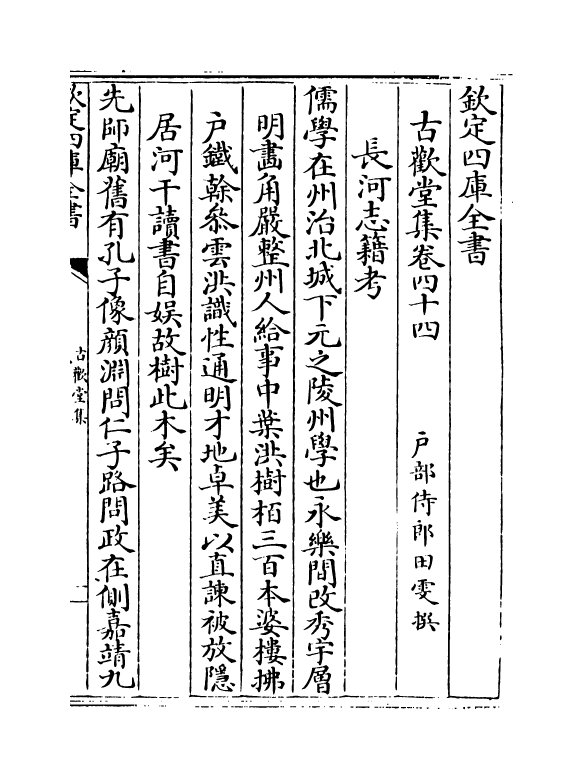 欽定四庫全書
古歡堂集卷四十四
户部侍郎田雯撰
長河志籍考
儒學在州治北城下元之陵州學也永樂間改秀宇層
明畫角嚴整州人給事中葉洪樹栢三百本婆樓拂
户鐵榦叅雲洪識性通明才地卓美以直諫被放隱
居河干讀書自娱故樹此木矣
先師廟舊有孔子像顔淵問仁子路問政在側嘉靖九
欽定四庫全書
古歡堂集
一